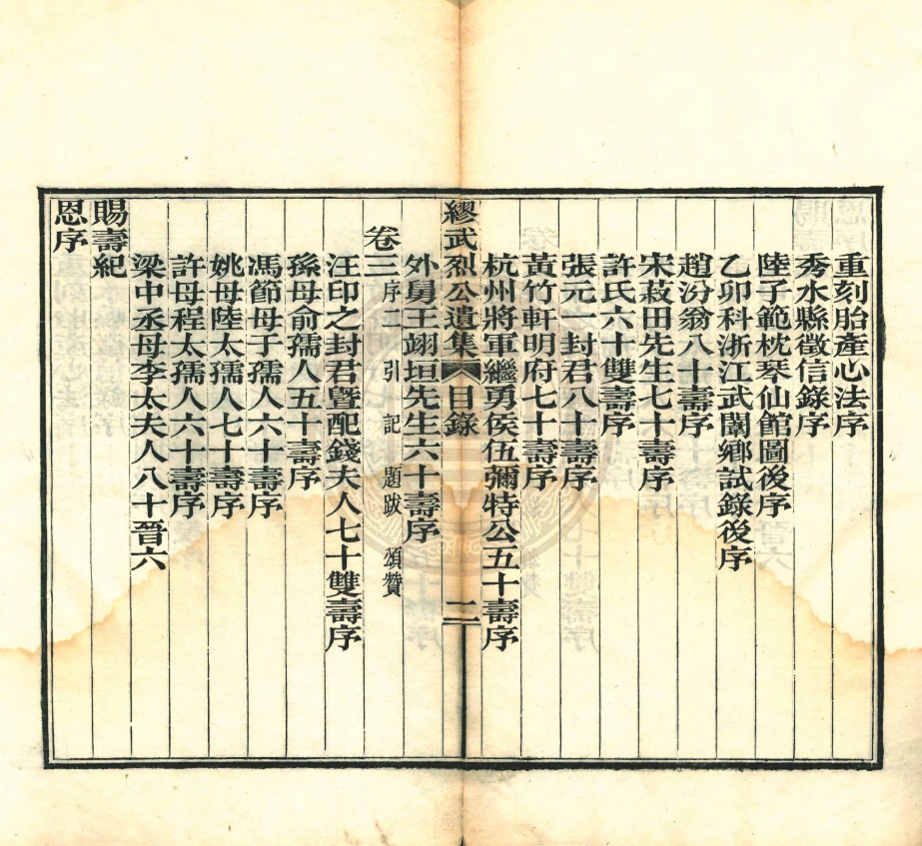 重刻胎產心法序
秀水縣徵信錄序
陸子範枕琴仙館圖後序
乙卯科浙江武闈鄉試錄後序
趙汾翁八十壽序
宋菽田先生七十壽序
許氏六十雙壽序
張元一封君八十壽序
黃竹軒明府七十壽序
杭州將軍繼勇侯伍彌特公五十壽序
繆武烈公遺集 目錄 二
外舅王翊垣先生六十壽序
卷三 序二 引 記 題跋 頌贊
汪印之封君暨配錢夫人七十雙壽序
孫母俞孺人五十壽序
馮節母于孺人六十壽序
姚母陸太孺人七十壽序
許母程太孺人六十壽序
梁中丞母李太夫人八十晉六
賜壽紀
恩序